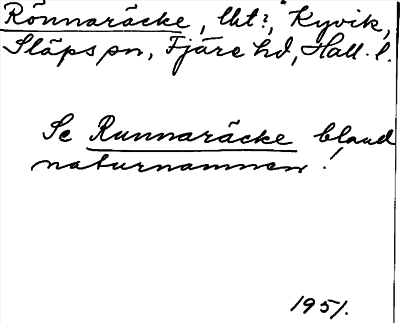 Rönnaräcke, lht?, Kyvik,
Släps sn, Fjäre hd, Hall. l.
Se Runnaräcke bland
naturnamnen!
1951.